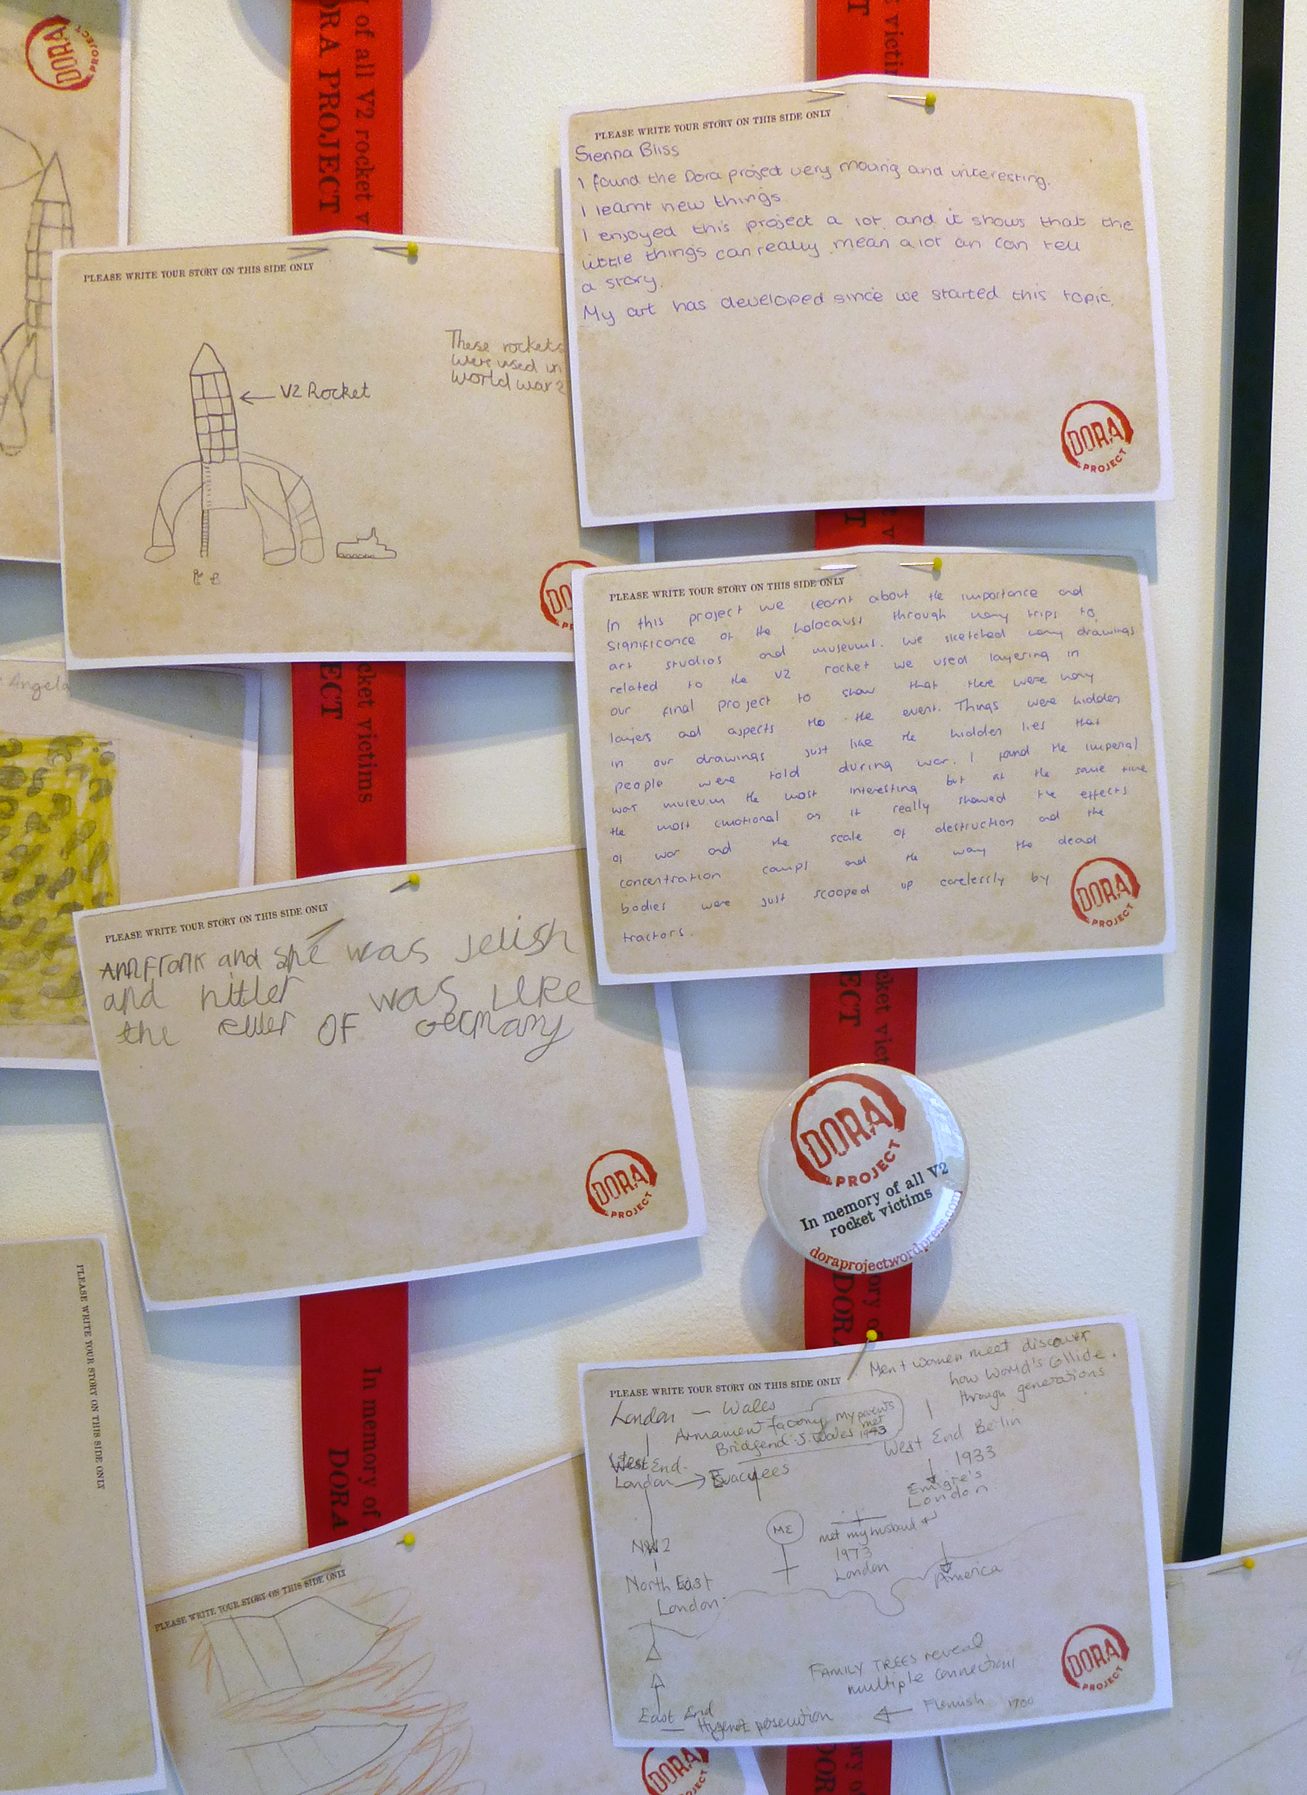 DORA
PROJECT
of all V2 rocket v
ORA PROJECT
victim
PLEASE WRITE YOUR STORY ON THIS SIDE ONLY
Sienna Bliss
I found the Dora project very moving and interesting.
I learnt new things
I enjoyed this project a lot and it shows that the
little things can really mean a lot an can tell
a story.
My art has developed since we started this topic.
DORA
PROJECT
PLEASE WRITE YOUR STORY ON THIS SIDE ONLY
These rockets
were used in
World war 2
V2 Rocket
DO
PLEASE WRITE YOUR STORY ON THIS SIDE ONLY
In this project we learnt about the importance and
significance of the holocaust through many trips to
art studios and museums. We sketched many drawings
related to the V2 rocket we used layering in
our final project to show that there were many
layers and aspects to the event. Things were hidden
in our drawings just like the hidden lies that
people were told during war. I found the imperial
war museum the most interesting but at the same time
the most emotional as it really showed the effects
of war and the scale of destruction and the
concentration camps and the way the dead
bodies were just scooped up carelessly by
tractors.
DORA
PROJECT
JECT
ocket victims
Angela
PLEASE WRITE YOUR STORY ON THIS SIDE ONLY
Annfrank and she was Jeiish
and hitler was like
the ruler OF Germany
DORA
PROJECT
ocket vict
JECT
DORA
PROJECT
In memory of all V2
rocket victims
doraprojectwordpress.com
ory o
DORA
PLEASE WRITE YOUR STORY ON THIS SIDE ONLY
In memory of
DORA
PLEASE WRITE YOUR STORY ON THIS SIDE ONLY
Men + women meet discover
how World's Collide.
through generations
London — Wales
Armament factory my parents
met
Bridgend. S. Wales 1943
West End
London → Evacuees
West End Berlin
1933
Emigre's
London
ME
met my husband
1973
London
NW2
North East
London
America
FAMILY TREES reveal
multiple connections
East End
Hugenot persecution ← Flemish 1700
DORA
PROJECT
PLEASE WRITE YOUR STORY ON THIS SIDE ONLY
DORA
PROJECT
mory of
DOR